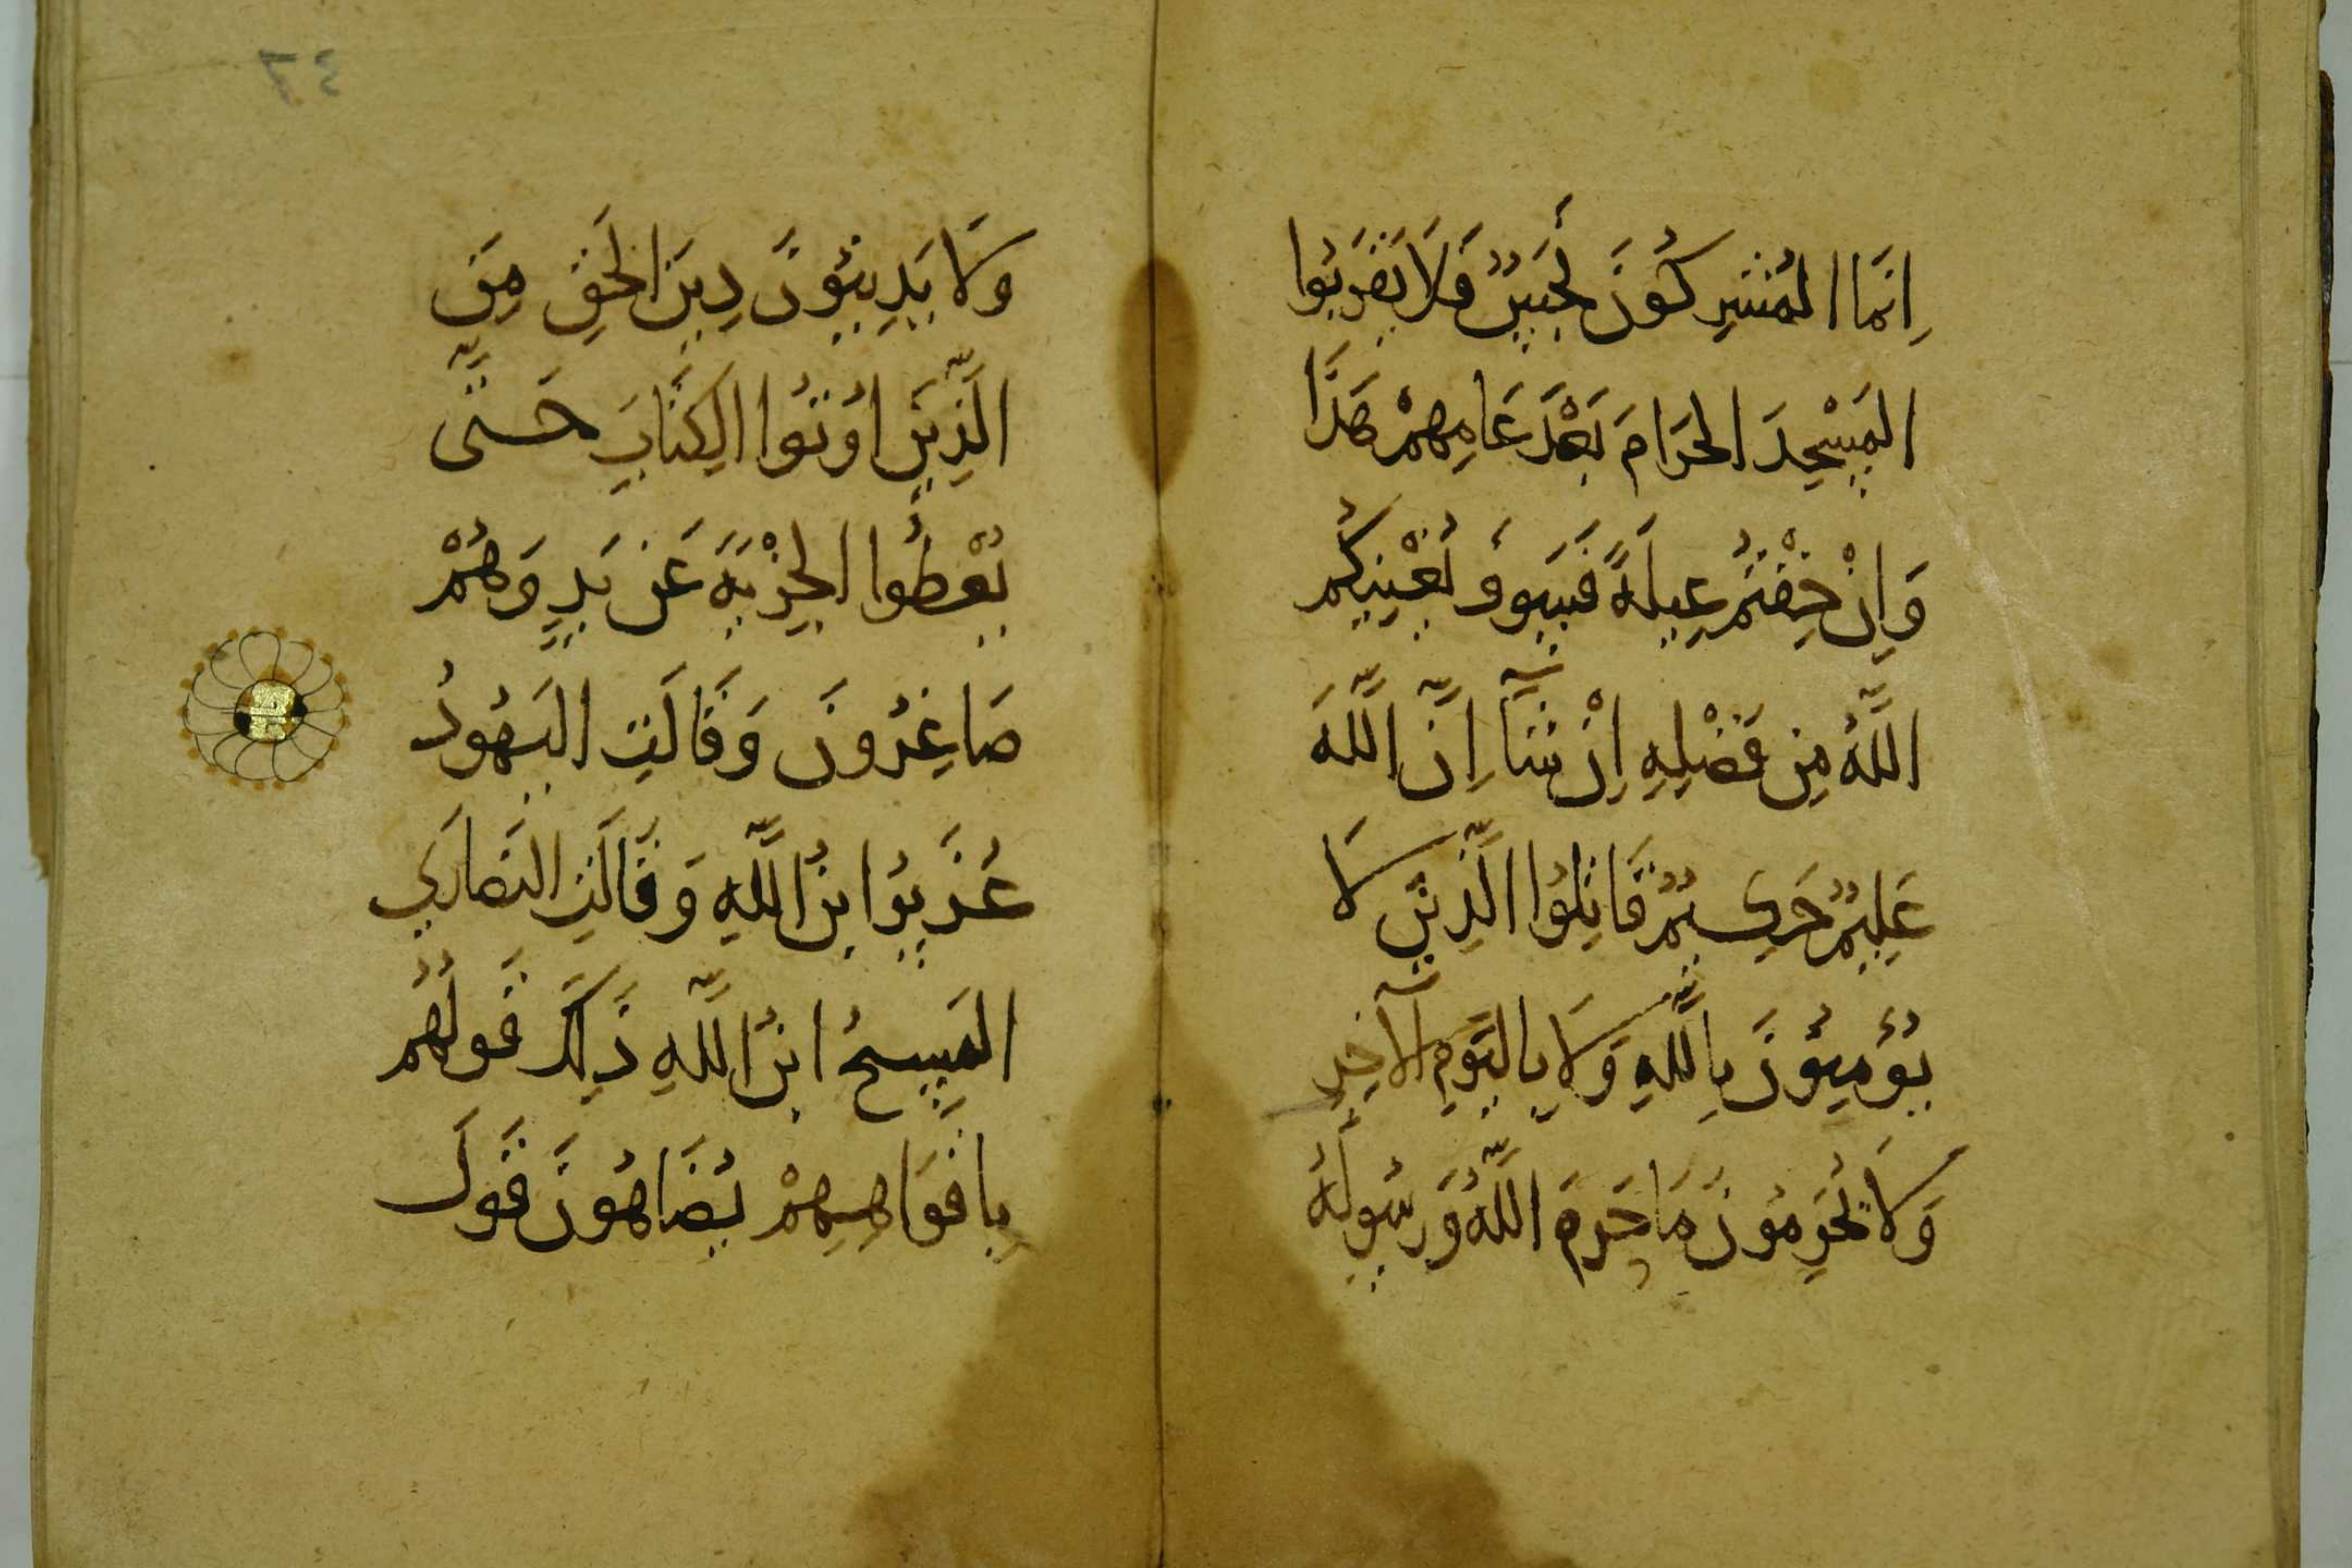 اِنَّمَا المُشْرِكُونَ نَجَسٌ فَلَا يَقْرَبُوا
المَسْجِدَ الحَرَامَ بَعْدَ عَامِهِمْ هَذَا
وَاِنْ خِفْتُمْ عَيلَةً فَسَوفَ يُغْنِيكُم
اللَّهُ مِن فَضْلِهِ اِنْ شَآ اِنَّ اللَّهَ
عَلِيمٌ حَكِيمٌ قَاتِلُوا الَّذِينَ لَا
يُؤمِنُونَ بِاللَّهِ وَلَا بِاليَومِ الآخِرِ
وَلَا يُحَرِمُونَ مَا حَرَمَ اللَّهُ وَرَسُولُهُ
٦٤
وَلَا يَدِينُونَ دِينَ الحَقِ مِنَ
الَّذِينَ اوُتُوا الكِتَابَ حَتَّى
يُعْطُوا الجِزْيَةَ عَن يَدٍ وَهُمْ
صَاغِرُونَ وَقَالَتِ اليَهُودُ
عُزَيرُ ابنُ اللَّهِ وَقَالَتِ النَصَارَي
المَسِيحُ ابنُ اللَّهِ ذَلِكَ قَولُهُم
بِافَوَاهِهِمْ يُضَاهُونَ قَولَ